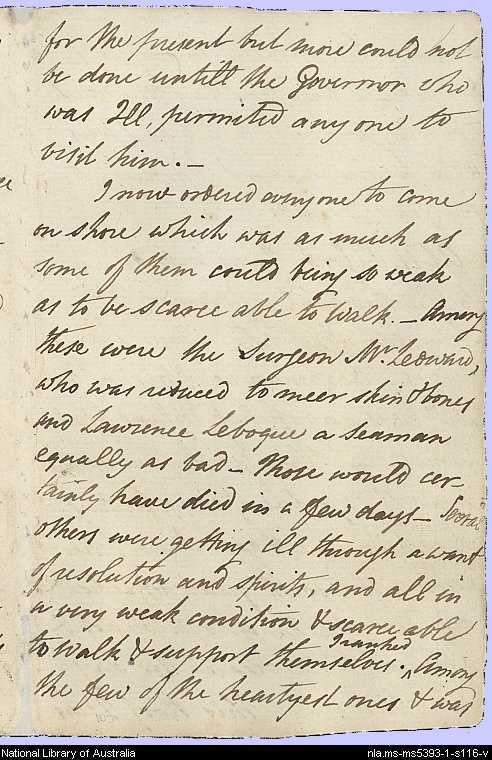 for the present but more could not
be done untill the Governor who
was Ill, permitted any one to
visit him. —
I now ordered everyone to come
on shore which was as much as
some of them could being so weak
as to be scarce able to Walk. — Among
these were the Surgeon Mr. Ledward,
who was reduced to meer skin & bones
and Lawrence Lebogue a Seaman
equally as bad — Those would cer-
tainly have died in a few days — Several
others were getting ill through a want
of resolution and spirits, and all in
a very weak condition & scarce able
to Walk & support themselves. ^ Among
I ranked
the few of the heartyest ones & was
National Library of Australia
nla.ms-ms5393-1-s116-v